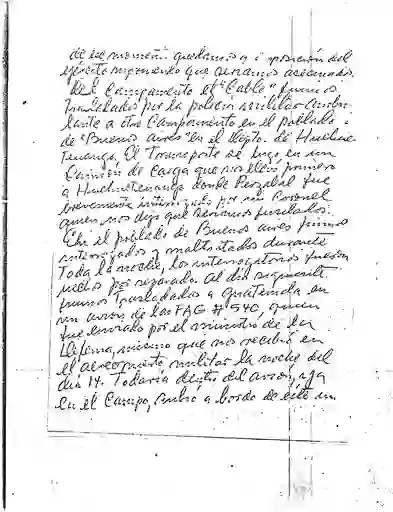 de ese momento quedamos a disposición del
ejército suponiendo que seríamos asesinados.
Del Campamento el "Cable" fuimos
trasladados por la policía militar ambu-
lante a otro Campamento en el poblado
de "Buenos Aires" en el Depto. de Huehue-
tenango. El Transporte se hizo en un
Camión de Carga que nos llevó primero
a Huehuetenango donde fue
brevemente interrogado por un Coronel
quien nos dijo que seríamos fusilados.
En el poblado de Buenos Aires fuimos
interrogados y maltratados durante
toda la noche, los interrogatorios fueron
hechos por separado. Al día siguiente
fuimos trasladados a Guatemala en
un avión de las FAG # 540, quien
fue enviado por el ministro de la
Defensa, mismo que nos recibió en
el aeropuerto militar la noche del
día 14. Todavía dentro del avión, ya
en el Campo, subió a bordo de éste un